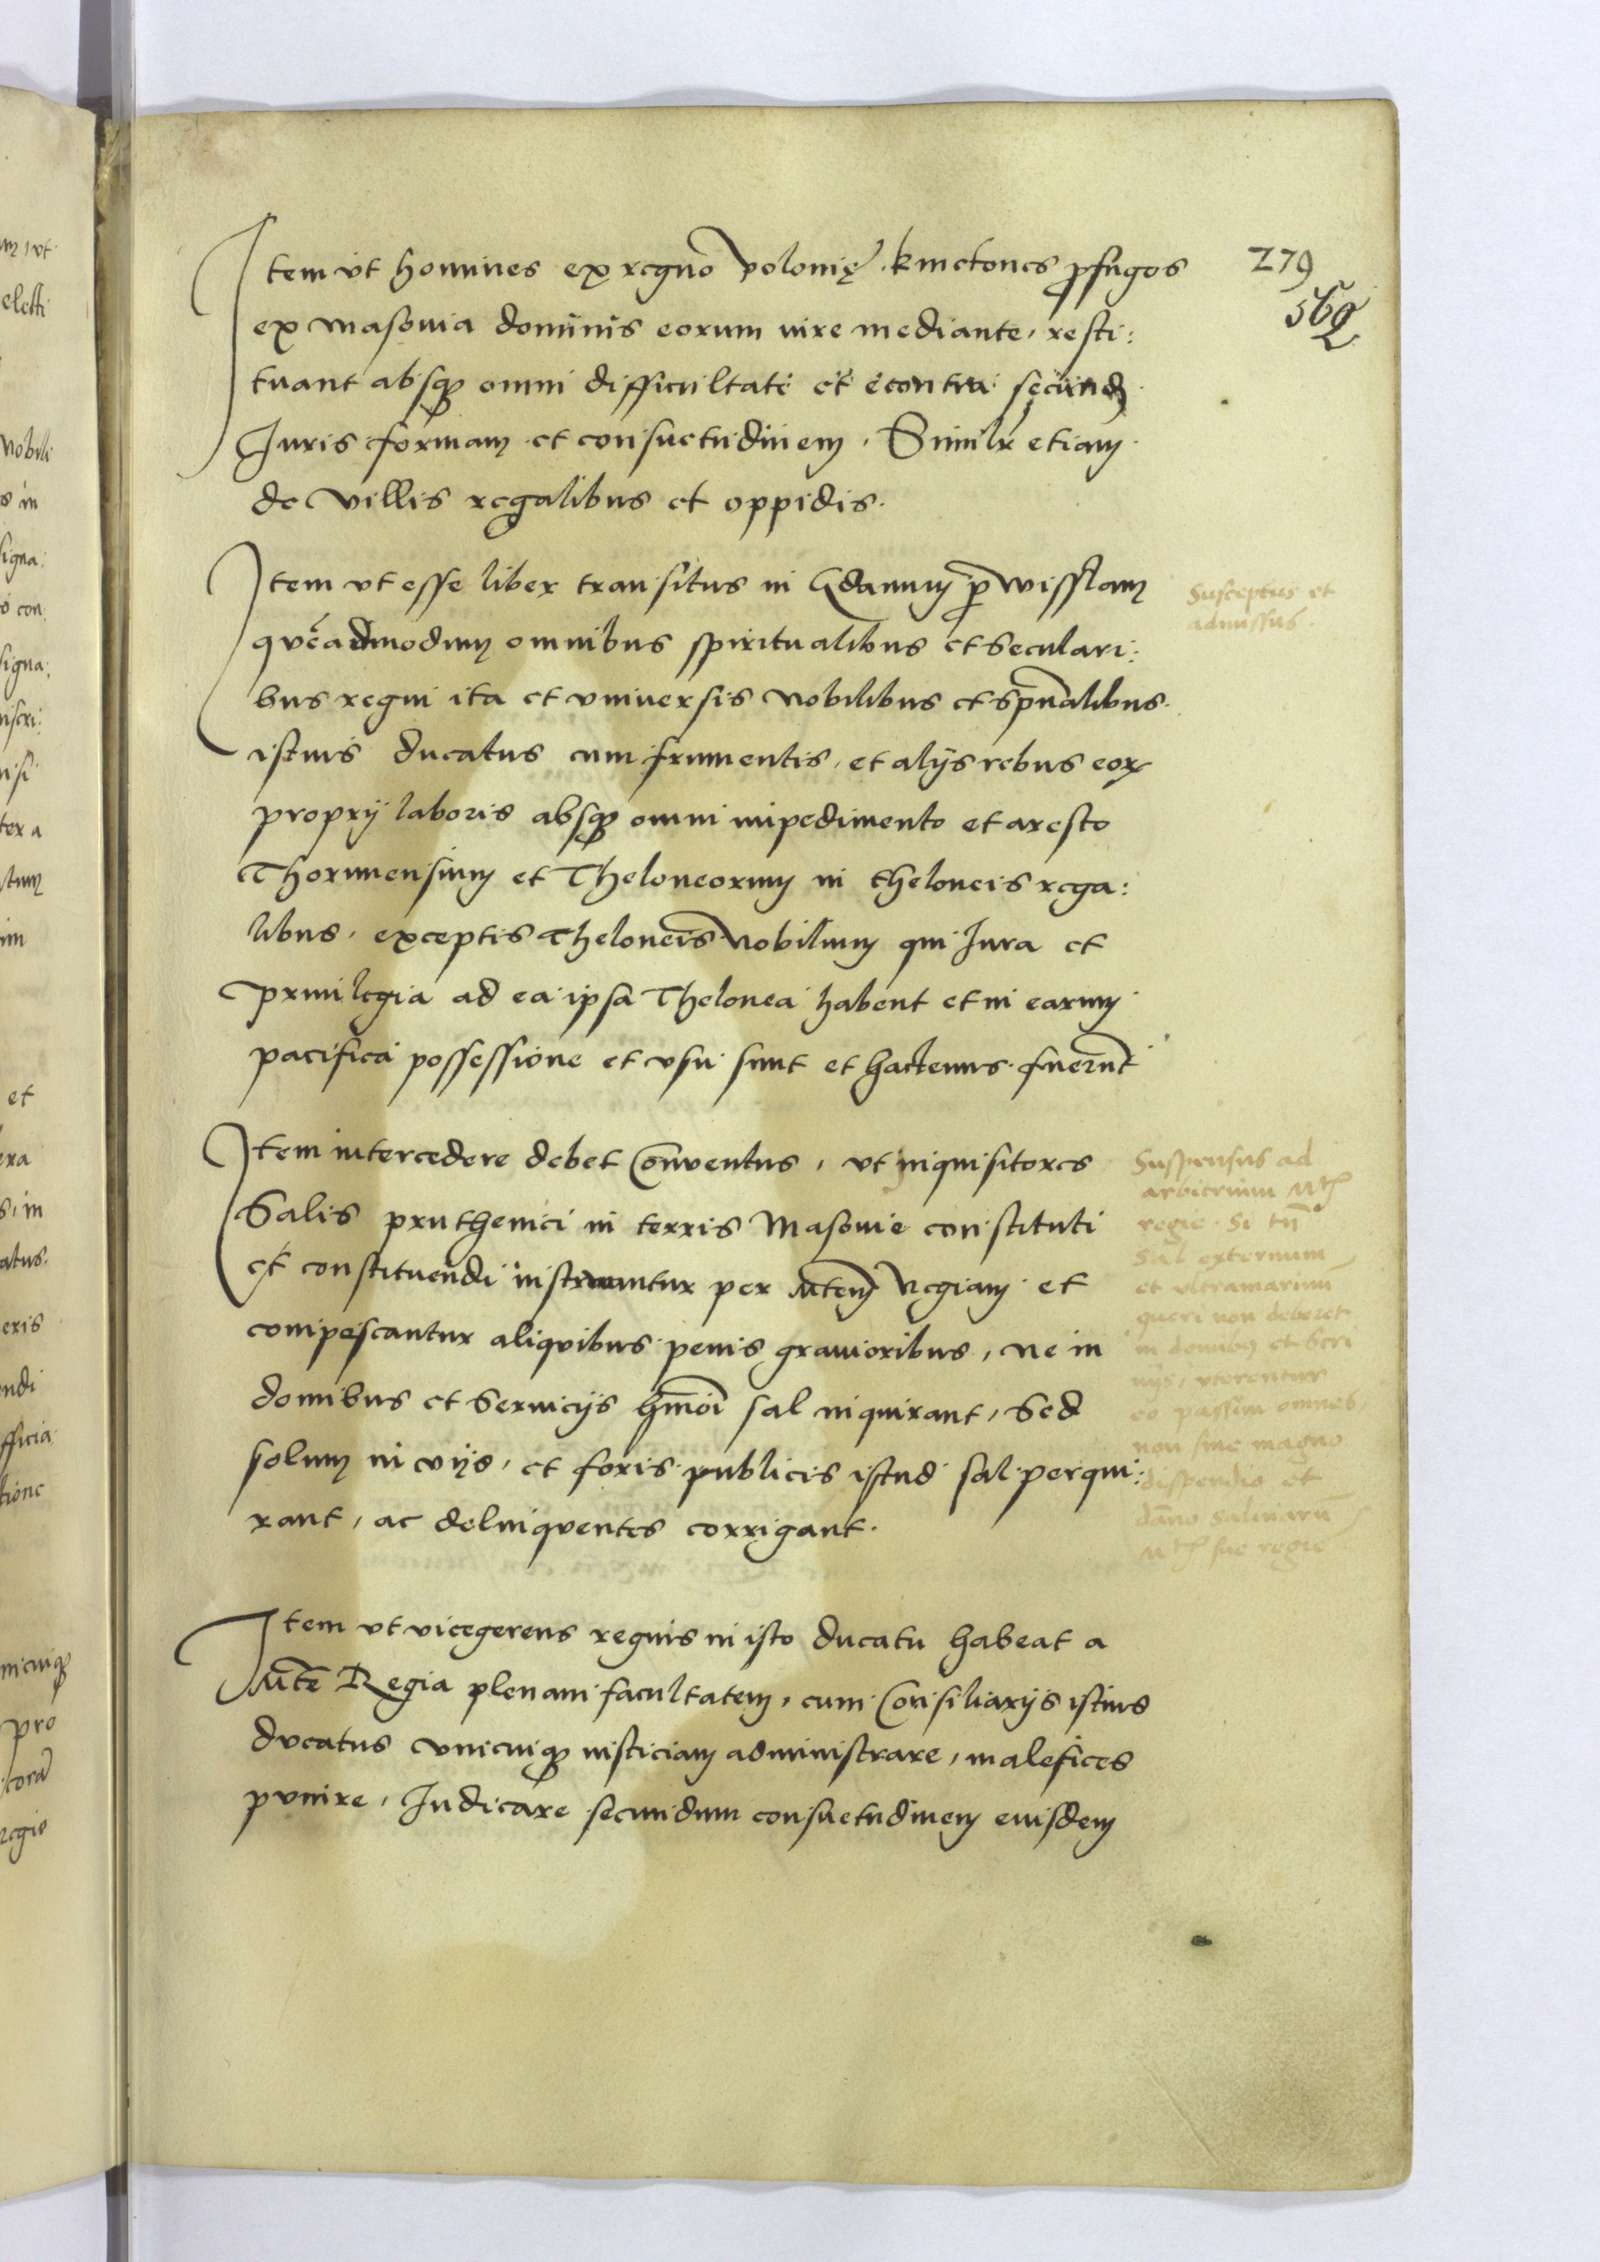 279
569
Item vt homines ex regno polonię kmetones ꝓfugos
ex masouia dominis eorum iure mediante, resti:
tuant absqꝫ omni difficultate et econtra secundꝫ
Iuris formam et consuetudinem, Similr etiam
de villis regalibus et oppidis.
Item vt esse liber transitus in Gdanum ꝑ wisslam
quēadmodum omnibus spiritualibus et Seculari:
bus regni ita et vniuersis nobilibus et spūalibus
istius ducatus cum frumentis, et alijs rebus eoꝝ
proprij laboris absqꝫ omni impedimento et aresto
Thorunensium et Theloneorum in theloneis rega:
libus, exceptis Theloneis nobilium qui Iura et
priuilegia ad ea ipsa Thelonea habent et in earum
pacifica possessione et vsu sunt et hactenus fuerūt
Susceptus et
admissus.
Item intercedere debet Conventus, vt inquisitores
Salis pruthenici in terris Masouie constituti
et constituendi instruantur per Mtem Regiam et
compescantur aliquibus penis grauioribus, ne in
domibus et Seruicijs hmōi sal inquirant, Sed
solum in vijs, et foris publicis istud sal perqui:
rant, ac delinquentes corrigant.
Suspensus ad
arbitrium Mtis
regie. Si tn̄
Sal externum
et vltramarinū
queri non deberet
in domibus et Scri
nijs, vterentur
eo passim omnes,
non sine magno
dispendio et
dāno Salinarū
Mtis sue regie
Item vt vicegerens regius in isto ducatu habeat a
Mte Regia plenam facultatem, cum Consiliarijs istius
ducatus vnicuiqꝫ iusticiam administrare, malefices
punire, Iudicare secundum consuetudinem eiusdem